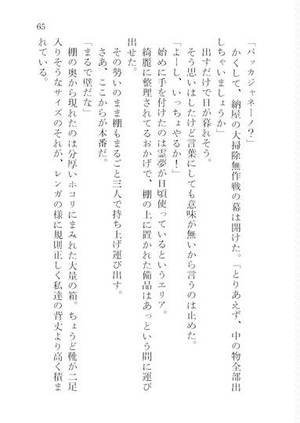 65
「バッカジャネーノ？」
かくして、納屋の大掃除無作戦の幕は開けた。「とりあえず、中の物全部出
しちゃいましょうか」
出すだけで日が暮れそう。
そう思いはしたけど言葉にしても意味が無いから言うのは止めた。
「よーし、いっちょやるか！」
始めに手を付けたのは霊夢が日頃使っているというエリア。
綺麗に整理されてるおかげで、棚の上に置かれた備品はあっという間に運び
出せた。
その勢いのまま棚もまるごと三人で持ち上げ運び出す。
さあ、ここからが本番だ。
「まるで壁だな」
棚の奥から現れたのは分厚いホコリにまみれた大量の箱。ちょうど靴が二足
入りそうなサイズのそれが、レンガの様に規則正しく私達の背丈より高く積ま
れている。